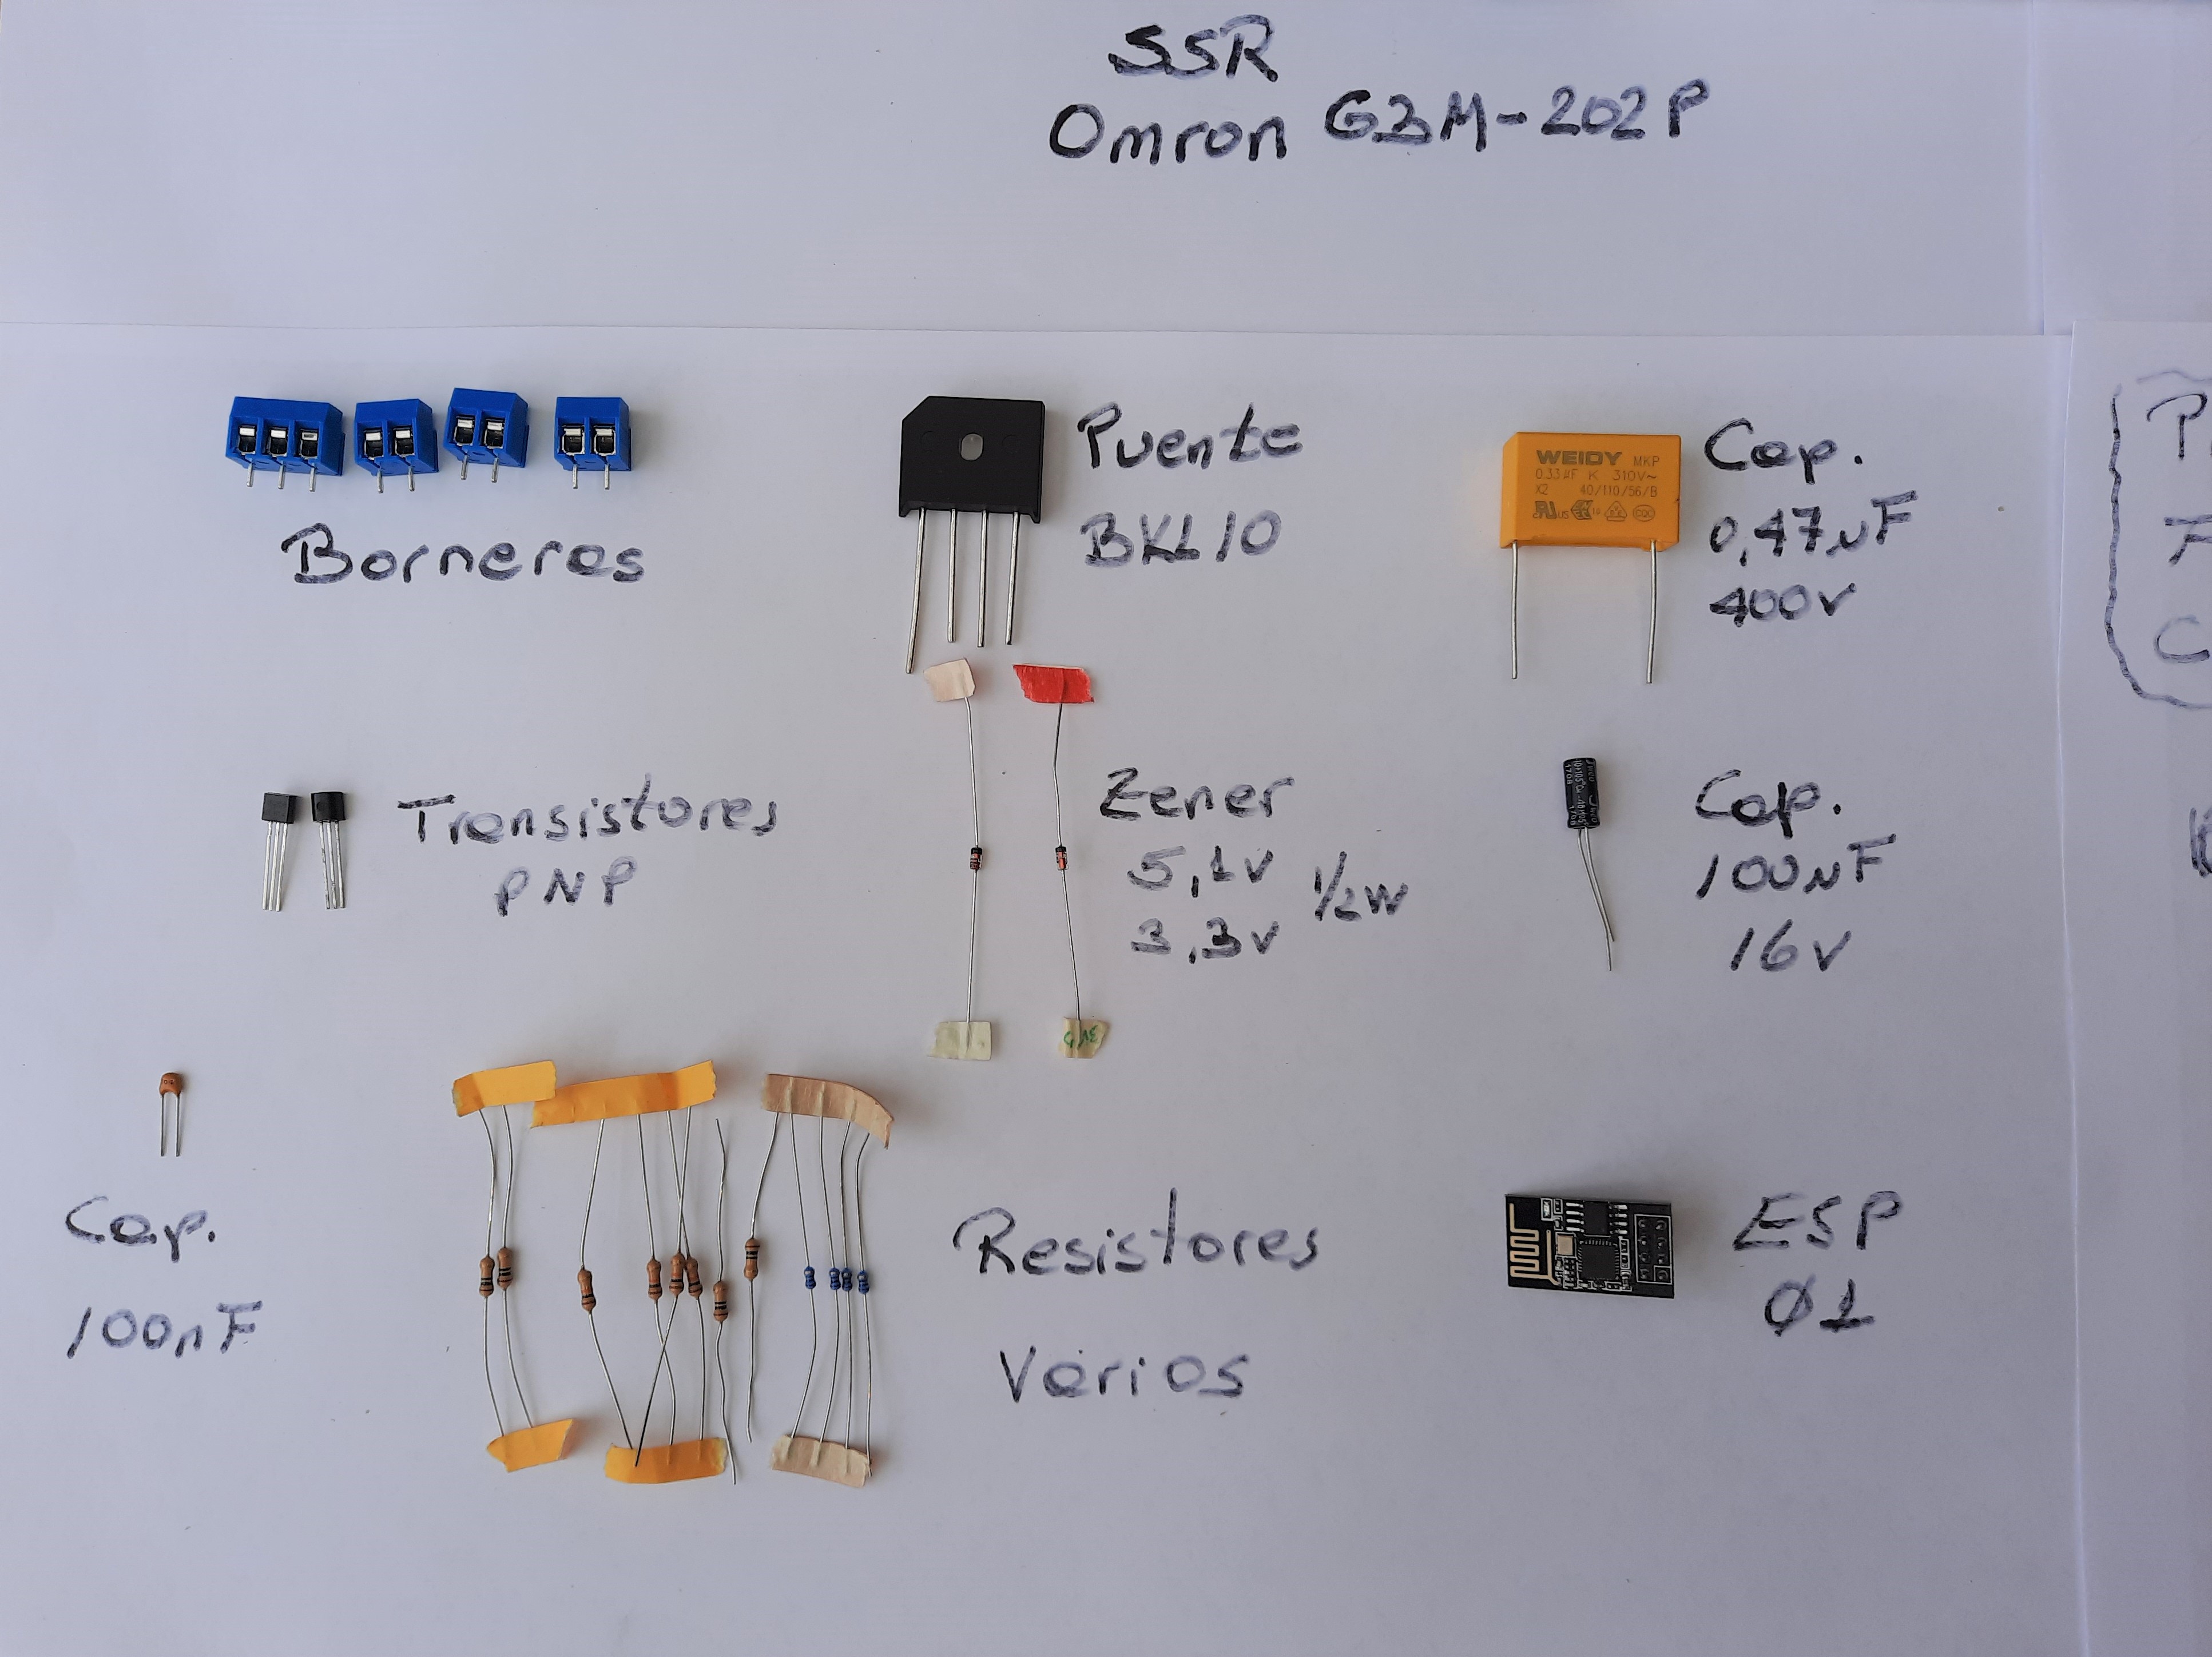 SSR
Omron G3M-202P
Borneras
Puente
BKL10
WEIDY MKP
0.33µF K 310V~
X2 40/110/56/B
Cap.
0,47uF
400V
Transistores
PNP
Zener
5,1V
3,3V
1/2W
Cap.
100uF
16V
Cap.
100nF
Resistores
Varios
ESP
Ø1